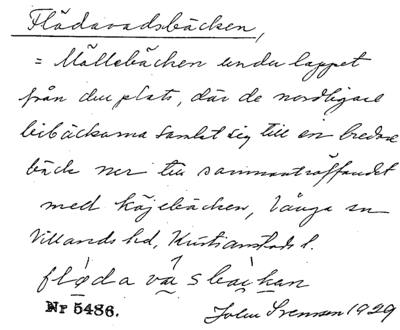 Flädavadsbäcken,
= Mällebäcken under loppet
från den plats, där de nordligare
bibäckarna samlat sig till en bredare
bäck ner till sammanträffandet
med Köjebäcken, Vånga sn
Villands hd, Kristianstads l.
fløda vas
Nr 5486. John Svensson 1929